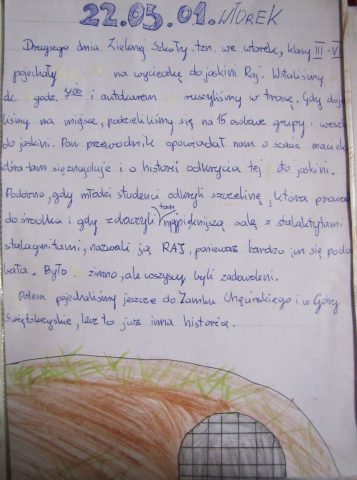 22.05.01. WTOREK
Drugiego dnia Zielonej Szkoły, tzn. we wtorek, klasy III - V
pojechały na wycieczkę do jaskini Raj. Wstaliśmy
ok. godz. 7⁰⁰ i autokarem ruszyliśmy w trasę. Gdy doje
liśmy na miejsce, podzieliliśmy się na 15 osobowe grupy i wesz
do jaskini. Pan przewodnik opowiadał nam o
która tam się znajduje i o historii odkrycia tej do jaskini.
Podobno, gdy młodzi studenci odkryli szczelinę, która prowa
do środka i gdy zobaczyli tam najpiękniejszą salę z stalaktytami
stalagmitami, nazwali ją RAJ, ponieważ bardzo im się podo
bała. Było zimno, ale wszyscy byli zadowoleni.
Potem pojechaliśmy jeszcze do Zamku Chęcińskiego i w Góry
Świętokrzyskie, lecz to już inna historia.